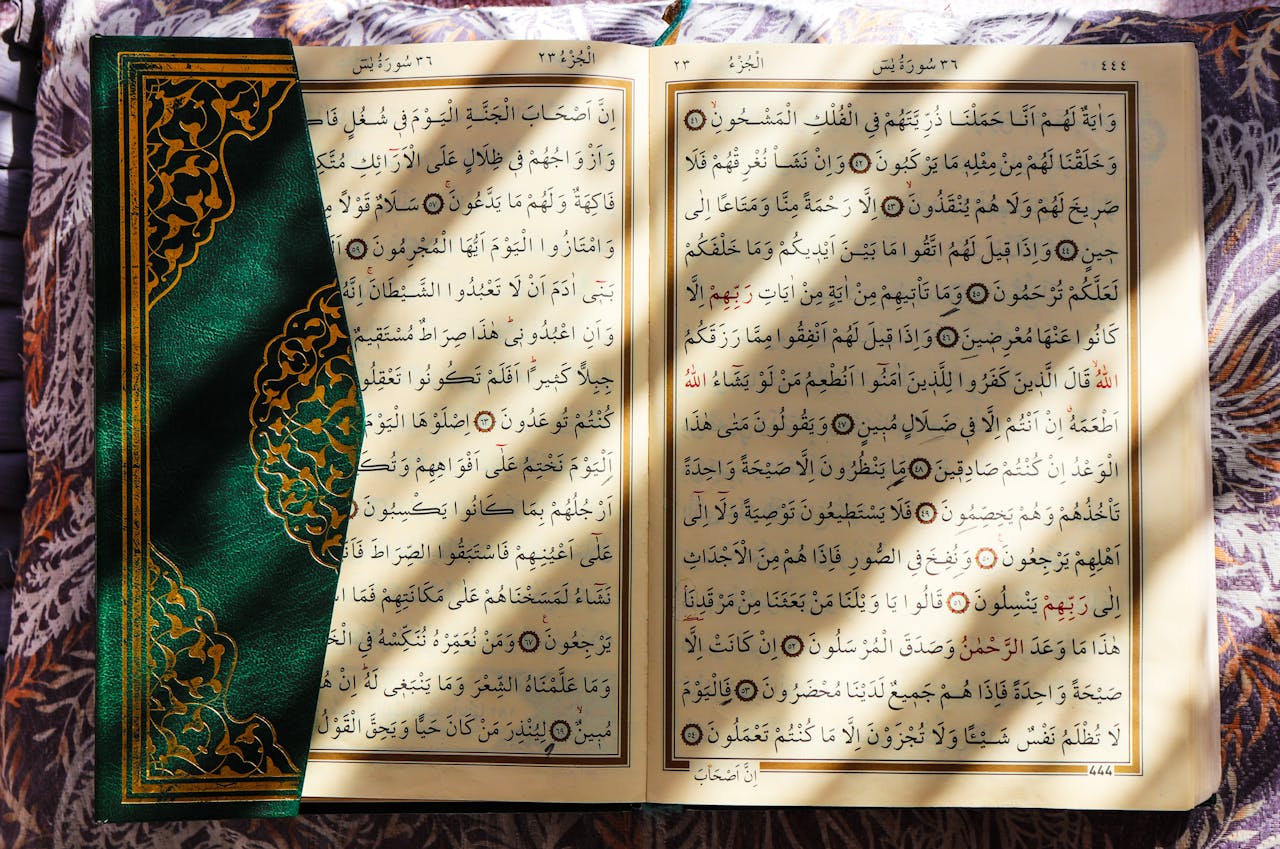 ٤٤٤ ٣٦ سُورَةُ يٰسٓ اَلْجُزْءُ ٢٣
وَاٰيَةٌ لَهُمْ اَنَّا حَمَلْنَا ذُرِّيَّتَهُمْ فِي الْفُلْكِ الْمَشْحُونِۙ ﴿٤١﴾
وَخَلَقْنَا لَهُمْ مِنْ مِثْلِهٖ مَا يَرْكَبُونَ ﴿٤٢﴾ وَاِنْ نَشَأْ نُغْرِقْهُمْ فَلَا
صَرٖيخَ لَهُمْ وَلَا هُمْ يُنْقَذُونَۙ ﴿٤٣﴾ اِلَّا رَحْمَةً مِنَّا وَمَتَاعًا اِلٰى
حٖينٍ ﴿٤٤﴾ وَاِذَا قٖيلَ لَهُمُ اتَّقُوا مَا بَيْنَ اَيْدٖيكُمْ وَمَا خَلْفَكُمْ
لَعَلَّكُمْ تُرْحَمُونَ ﴿٤٥﴾ وَمَا تَأْتٖيهِمْ مِنْ اٰيَةٍ مِنْ اٰيَاتِ رَبِّهِمْ اِلَّا
كَانُوا عَنْهَا مُعْرِضٖينَ ﴿٤٦﴾ وَاِذَا قٖيلَ لَهُمْ اَنْفِقُوا مِمَّا رَزَقَكُمُ
اللّٰهُۙ قَالَ الَّذٖينَ كَفَرُوا لِلَّذٖينَ اٰمَنُٓوا اَنُطْعِمُ مَنْ لَوْ يَشَٓاءُ اللّٰهُ
اَطْعَمَهُۗ اِنْ اَنْتُمْ اِلَّا فٖي ضَلَالٍ مُبٖينٍ ﴿٤٧﴾ وَيَقُولُونَ مَتٰى هٰذَا
الْوَعْدُ اِنْ كُنْتُمْ صَادِقٖينَ ﴿٤٨﴾ مَا يَنْظُرُونَ اِلَّا صَيْحَةً وَاحِدَةً
تَأْخُذُهُمْ وَهُمْ يَخِصِّمُونَ ﴿٤٩﴾ فَلَا يَسْتَطٖيعُونَ تَوْصِيَةً وَلَٓا اِلٰٓى
اَهْلِهِمْ يَرْجِعُونَ ﴿٥٠﴾ وَنُفِخَ فِي الصُّورِ فَاِذَا هُمْ مِنَ الْاَجْدَاثِ
اِلٰى رَبِّهِمْ يَنْسِلُونَ ﴿٥١﴾ قَالُوا يَا وَيْلَنَا مَنْ بَعَثَنَا مِنْ مَرْقَدِنَا
هٰذَا مَا وَعَدَ الرَّحْمٰنُ وَصَدَقَ الْمُرْسَلُونَ ﴿٥٢﴾ اِنْ كَانَتْ اِلَّا
صَيْحَةً وَاحِدَةً فَاِذَا هُمْ جَمٖيعٌ لَدَيْنَا مُحْضَرُونَ ﴿٥٣﴾ فَالْيَوْمَ
لَا تُظْلَمُ نَفْسٌ شَيْـًٔا وَلَا تُجْزَوْنَ اِلَّا مَا كُنْتُمْ تَعْمَلُونَ ﴿٥٤﴾
444 اِنَّ اَصْحَابَ
اَلْجُزْءُ ٢٣ ٣٦ سُورَةُ يٰسٓ
اِنَّ اَصْحَابَ الْجَنَّةِ الْيَوْمَ فٖي شُغُلٍ
وَاَزْوَاجُهُمْ فٖي ظِلَالٍ عَلَى الْاَرَٓائِكِ
فَاكِهَةٌ وَلَهُمْ مَا يَدَّعُونَۚ ﴿٥٧﴾ سَلَامٌ قَوْلًا
وَامْتَازُوا الْيَوْمَ اَيُّهَا الْمُجْرِمُونَ ﴿٥٩﴾
بَنٖٓي اٰدَمَ اَنْ لَا تَعْبُدُوا الشَّيْطَانَۚ اِنَّهُ
وَاَنِ اعْبُدُونٖيۜ هٰذَا صِرَاطٌ مُسْتَقٖيمٌ
جِبِلًّا كَثٖيرًاۜ اَفَلَمْ تَكُونُوا
كُنْتُمْ تُوعَدُونَ ﴿٦٣﴾ اِصْلَوْهَا الْيَوْمَ
اَلْيَوْمَ نَخْتِمُ عَلٰٓى اَفْوَاهِهِمْ
اَرْجُلُهُمْ بِمَا كَانُوا يَكْسِبُونَ
عَلٰٓى اَعْيُنِهِمْ فَاسْتَبَقُوا الصِّرَاطَ
نَشَٓاءُ لَمَسَخْنَاهُمْ عَلٰى مَكَانَتِهِمْ فَمَا
يَرْجِعُونَ ﴿٦٧﴾ وَمَنْ نُعَمِّرْهُ نُنَكِّسْهُ فِي
وَمَا عَلَّمْنَاهُ الشِّعْرَ وَمَا يَنْبَغٖي لَهُۜ اِنْ
مُبٖينٌۙ ﴿٦٩﴾ لِيُنْذِرَ مَنْ كَانَ حَيًّا وَيَحِقَّ الْقَوْلُ